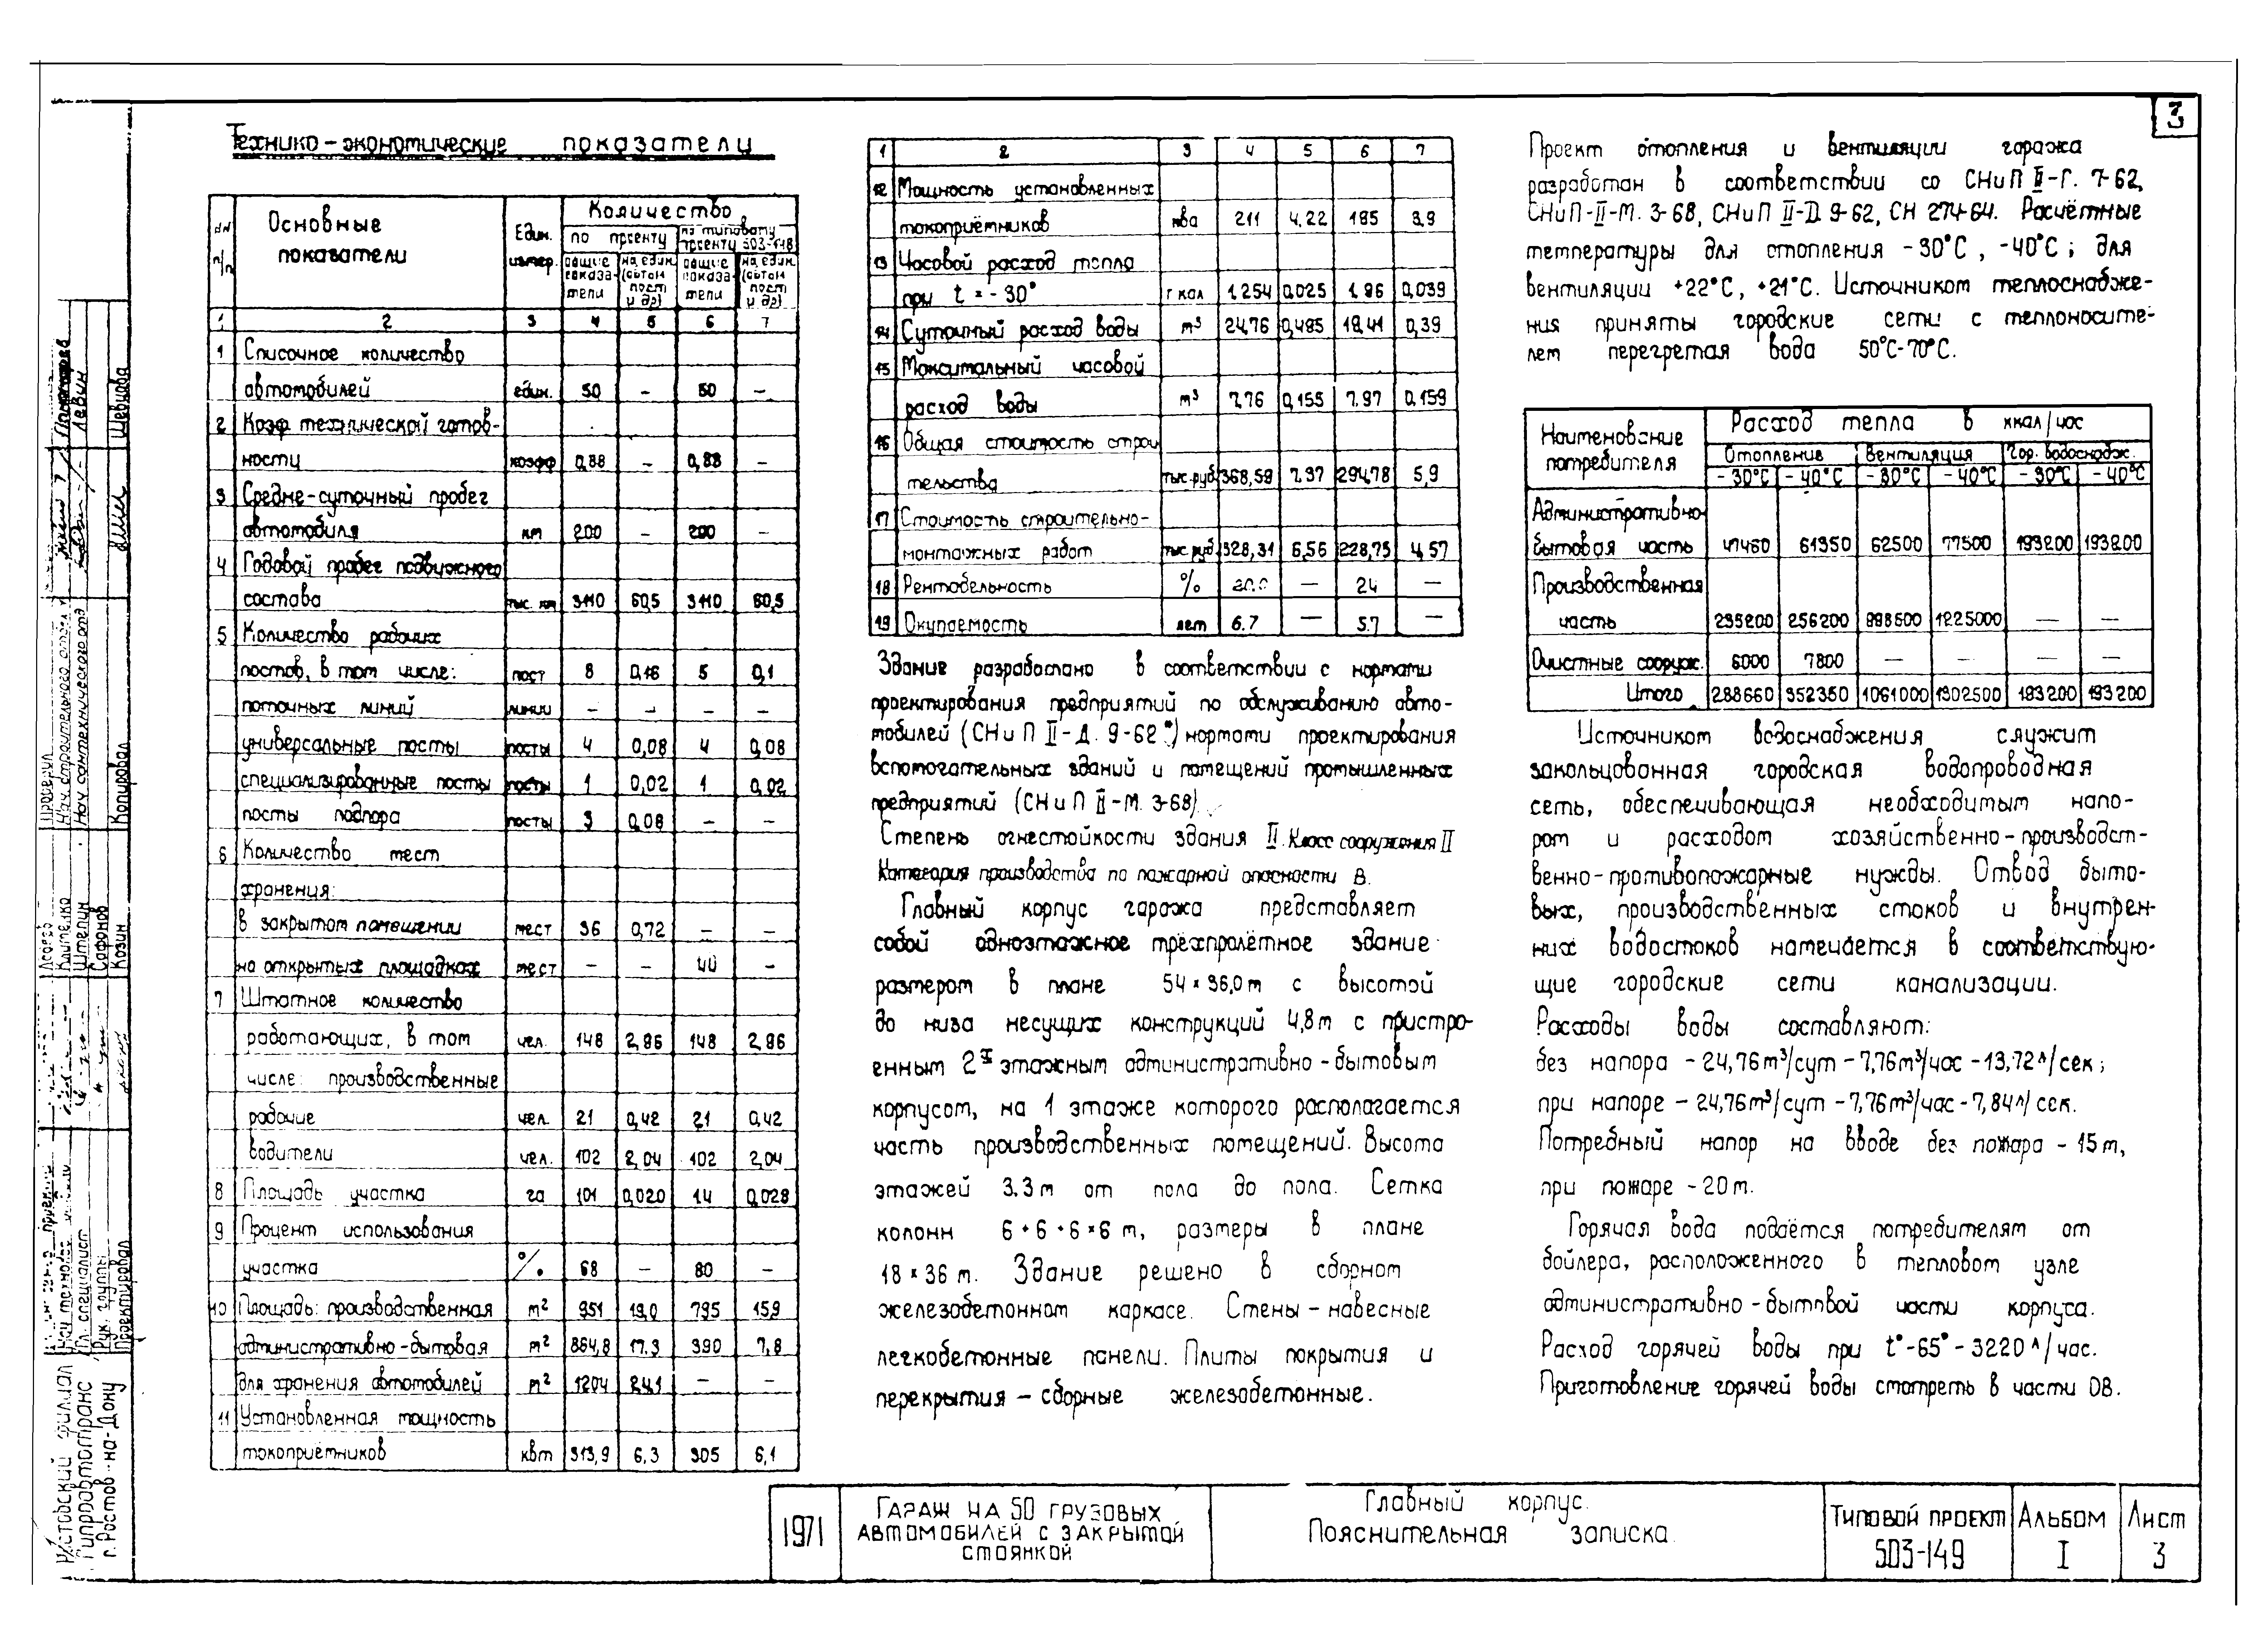 3
Технико-экономические показатели
№№ п/п | Основные показатели | Един. измер. | Количество
по проекту | по типовому проекту 503-148
общие показатели | на един. (автом пост и др) | общие показатели | на един. (автом пост и др)
1 | 2 | 3 | 4 | 5 | 6 | 7
1 | Списочное количество
автомобилей | един. | 50 | – | 50 | –
2 | Коэф технической готов-
ности | коэфф | 0,88 | – | 0,88 | –
3 | Средне-суточный пробег
автомобиля | км | 200 | – | 200 | –
4 | Годовой пробег подвижного
состава | тыс. км | 3110 | 60,5 | 3110 | 60,5
5 | Количество рабочих
постов, в том числе: | пост | 8 | 0,16 | 5 | 0,1
поточных линий | линии | – | – | – | –
универсальные посты | посты | 4 | 0,08 | 4 | 0,08
специализированные посты | посты | 1 | 0,02 | 1 | 0,02
посты подпора | посты | 3 | 0,08 | – | –
6 | Количество мест
хранения:
в закрытом помещении | мест | 36 | 0,72 | – | –
на открытых площадках | мест | – | – | 40 | –
7 | Штатное количество
работающих, в том | чел. | 148 | 2,96 | 148 | 2,96
числе: производственные
рабочие | чел. | 21 | 0,42 | 21 | 0,42
водители | чел. | 102 | 2,04 | 102 | 2,04
8 | Площадь участка | га | 1,01 | 0,020 | 1,4 | 0,028
9 | Процент использования
участка | % | 68 | – | 80 | –
10 | Площадь: производственная | м² | 951 | 19,0 | 795 | 15,9
административно-бытовая | м² | 864,8 | 17.3 | 390 | 7,8
для хранения автомобилей | м² | 1204 | 24,1 | – | –
11 | Установленная мощность
токоприёмников | квт | 313,9 | 6,3 | 305 | 6,1
1 | 2 | 3 | 4 | 5 | 6 | 7
12 | Мощность установленных
токоприёмников | ква | 211 | 4,22 | 195 | 3,9
13 | Часовой расход тепла
при t = -30° | гкал | 1,254 | 0,025 | 1,96 | 0,039
14 | Суточный расход воды | м³ | 24,76 | 0,495 | 19,41 | 0,39
15 | Максимальный часовой
расход воды | м³ | 7,76 | 0,155 | 7,97 | 0,159
16 | Общая стоимость строи
тельства | тыс.руб | 368,59 | 7,37 | 294,78 | 5,9
17 | Стоимость строительно-
монтажных работ | тыс.руб | 328,31 | 6,56 | 228,75 | 4,57
18 | Рентабельность | % | – | 24 | –
19 | Окупаемость | лет | 6.7 | – | 5.7 | –
Здание разработано в соответствии с нормами
проектирования предприятий по обслуживанию авто-
мобилей (СНиП II-Д. 9-62*) нормами проектирования
вспомогательных зданий и помещений промышленных
предприятий (СНиП II-М. 3-68).
Степень огнестойкости здания II. Класс сооружения II
Категория производства по пожарной опасности В.
Главный корпус гаража представляет
собой одноэтажное трёхпролётное здание
размером в плане 54×36,0м с высотой
до низа несущих конструкций 4,8м с пристро-
енным 2х этажным административно-бытовым
корпусом, на 1 этаже которого располагается
часть производственных помещений. Высота
этажей 3.3м от пола до пола. Сетка
колонн 6+6+6×6 м, размеры в плане
18×36 м. Здание решено в сборном
железобетонном каркасе. Стены-навесные
легкобетонные панели. Плиты покрытия и
перекрытия – сборные железобетонные.
Проект отопления и вентиляции гаража
разработан в соответствии со СНиП II-Г. 7-62,
СНиП-II-М. 3-68, СНиП II-Д 9-62, СН 274-64. Расчётные
температуры для отопления -30°С, -40°С; для
вентиляции +22°С, +21°С. Источником теплоснабже-
ния приняты городские сети с теплоносите-
лем перегретая вода 50°С-70°С.
Наименование потребителя | Расход тепла в ккал/час
Отопление | Вентиляция | Гор. водоснабж.
-30°С | -40°С | -30°С | -40°С | -30°С | -40°С
Административно-
бытовая часть | 47460 | 61350 | 62500 | 77500 | 193200 | 193200
Производственная
часть | 235200 | 256200 | 998500 | 1225000 | – | –
Очистные сооруж. | 6000 | 7800 | – | – | – | –
Итого | 288660 | 352350 | 1061000 | 1302500 | 193200 | 193200
Источником водоснабжения служит
закольцованная городская водопроводная
сеть, обеспечивающая необходимым напо-
ром и расходом хозяйственно-производст-
венно-противопожарные нужды. Отвод быто-
вых, производственных стоков и внутрен-
них водостоков намечается в соответствую-
щие городские сети канализации.
Расходы воды составляют:
без напора – 24,76м³/сут – 7,76м³/час – 13,72л/сек;
при напоре – 24,76м³/сут – 7,76м³/час – 7,84л/сек.
Потребный напор на вводе без пожара – 15м,
при пожаре – 20м.
Горячая вода подаётся потребителям от
бойлера, расположенного в тепловом узле
административно-бытовой части корпуса.
Расход горячей воды при t°-65° – 3220л/час.
Приготовление горячей воды смотреть в части ОВ.
1971
Гараж на 50 грузовых
автомобилей с закрытой
стоянкой
Главный корпус.
Пояснительная записка.
Типовой проект
503-149
Альбом
I
Лист
3
Ростовский филиал
Гипроавтотранс
г. Ростов-на-Дону
Гл. специалист
Рук. группы
Проектировал
Штепин
Сафонов
Козин
Проверил
Нач. строительного отдел
Нач сантехнического отд
Копировал
Левин
Шевцова